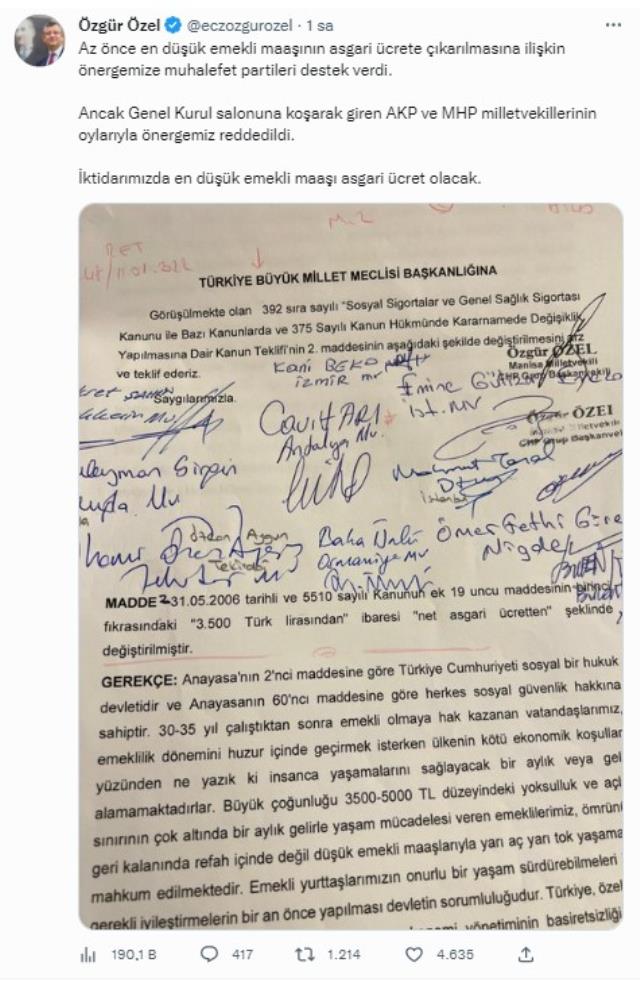 Özgür Özel @eczozgurozel · 1 sa
Az önce en düşük emekli maaşının asgari ücrete çıkarılmasına ilişkin
önergemize muhalefet partileri destek verdi.
Ancak Genel Kurul salonuna koşarak giren AKP ve MHP milletvekillerinin
oylarıyla önergemiz reddedildi.
İktidarımızda en düşük emekli maaşı asgari ücret olacak.
M.2
RET
TÜRKİYE BÜYÜK MİLLET MECLİSİ BAŞKANLIĞINA
Görüşülmekte olan 392 sıra sayılı "Sosyal Sigortalar ve Genel Sağlık Sigortası
Kanunu ile Bazı Kanunlarda ve 375 Sayılı Kanun Hükmünde Kararnamede Değişiklik
Yapılmasına Dair Kanun Teklifi'nin 2. maddesinin aşağıdaki şekilde değiştirilmesini arz
ve teklif ederiz.
Özgür ÖZEL
Manisa Milletvekili
CHP Grup Başkanvekili
Kani BEKO
İZMİR mv
Saygılarımızla.
Emine
İst. MV
Cavit ARI
Antalya Mv.
ÖZEL
Mahmut Tanal
İstanbul
Aygun
Tekirdağ
Baha Ünlü
Osmaniye MV
Ömer Fethi Gürer
Niğde
MADDE 2-31.05.2006 tarihli ve 5510 sayılı Kanunun ek 19 uncu maddesinin birinci
fıkrasındaki "3.500 Türk lirasından" ibaresi "net asgari ücretten" şeklinde
değiştirilmiştir.
GEREKÇE: Anayasa'nın 2'nci maddesine göre Türkiye Cumhuriyeti sosyal bir hukuk
devletidir ve Anayasanın 60'ncı maddesine göre herkes sosyal güvenlik hakkına
sahiptir. 30-35 yıl çalıştıktan sonra emekli olmaya hak kazanan vatandaşlarımız,
emeklilik dönemini huzur içinde geçirmek isterken ülkenin kötü ekonomik koşullar
yüzünden ne yazık ki insanca yaşamalarını sağlayacak bir aylık veya gel
alamamaktadırlar. Büyük çoğunluğu 3500-5000 TL düzeyindeki yoksulluk ve açl
sınırının çok altında bir aylık gelirle yaşam mücadelesi veren emeklilerimiz, ömrünü
geri kalanında refah içinde değil düşük emekli maaşlarıyla yarı aç yarı tok yaşama
mahkum edilmektedir. Emekli yurttaşlarımızın onurlu bir yaşam sürdürebilmeleri
gerekli iyileştirmelerin bir an önce yapılması devletin sorumluluğudur. Türkiye, özel
yönetiminin basiretsizliği
190,1 B 417 1.214 4.635